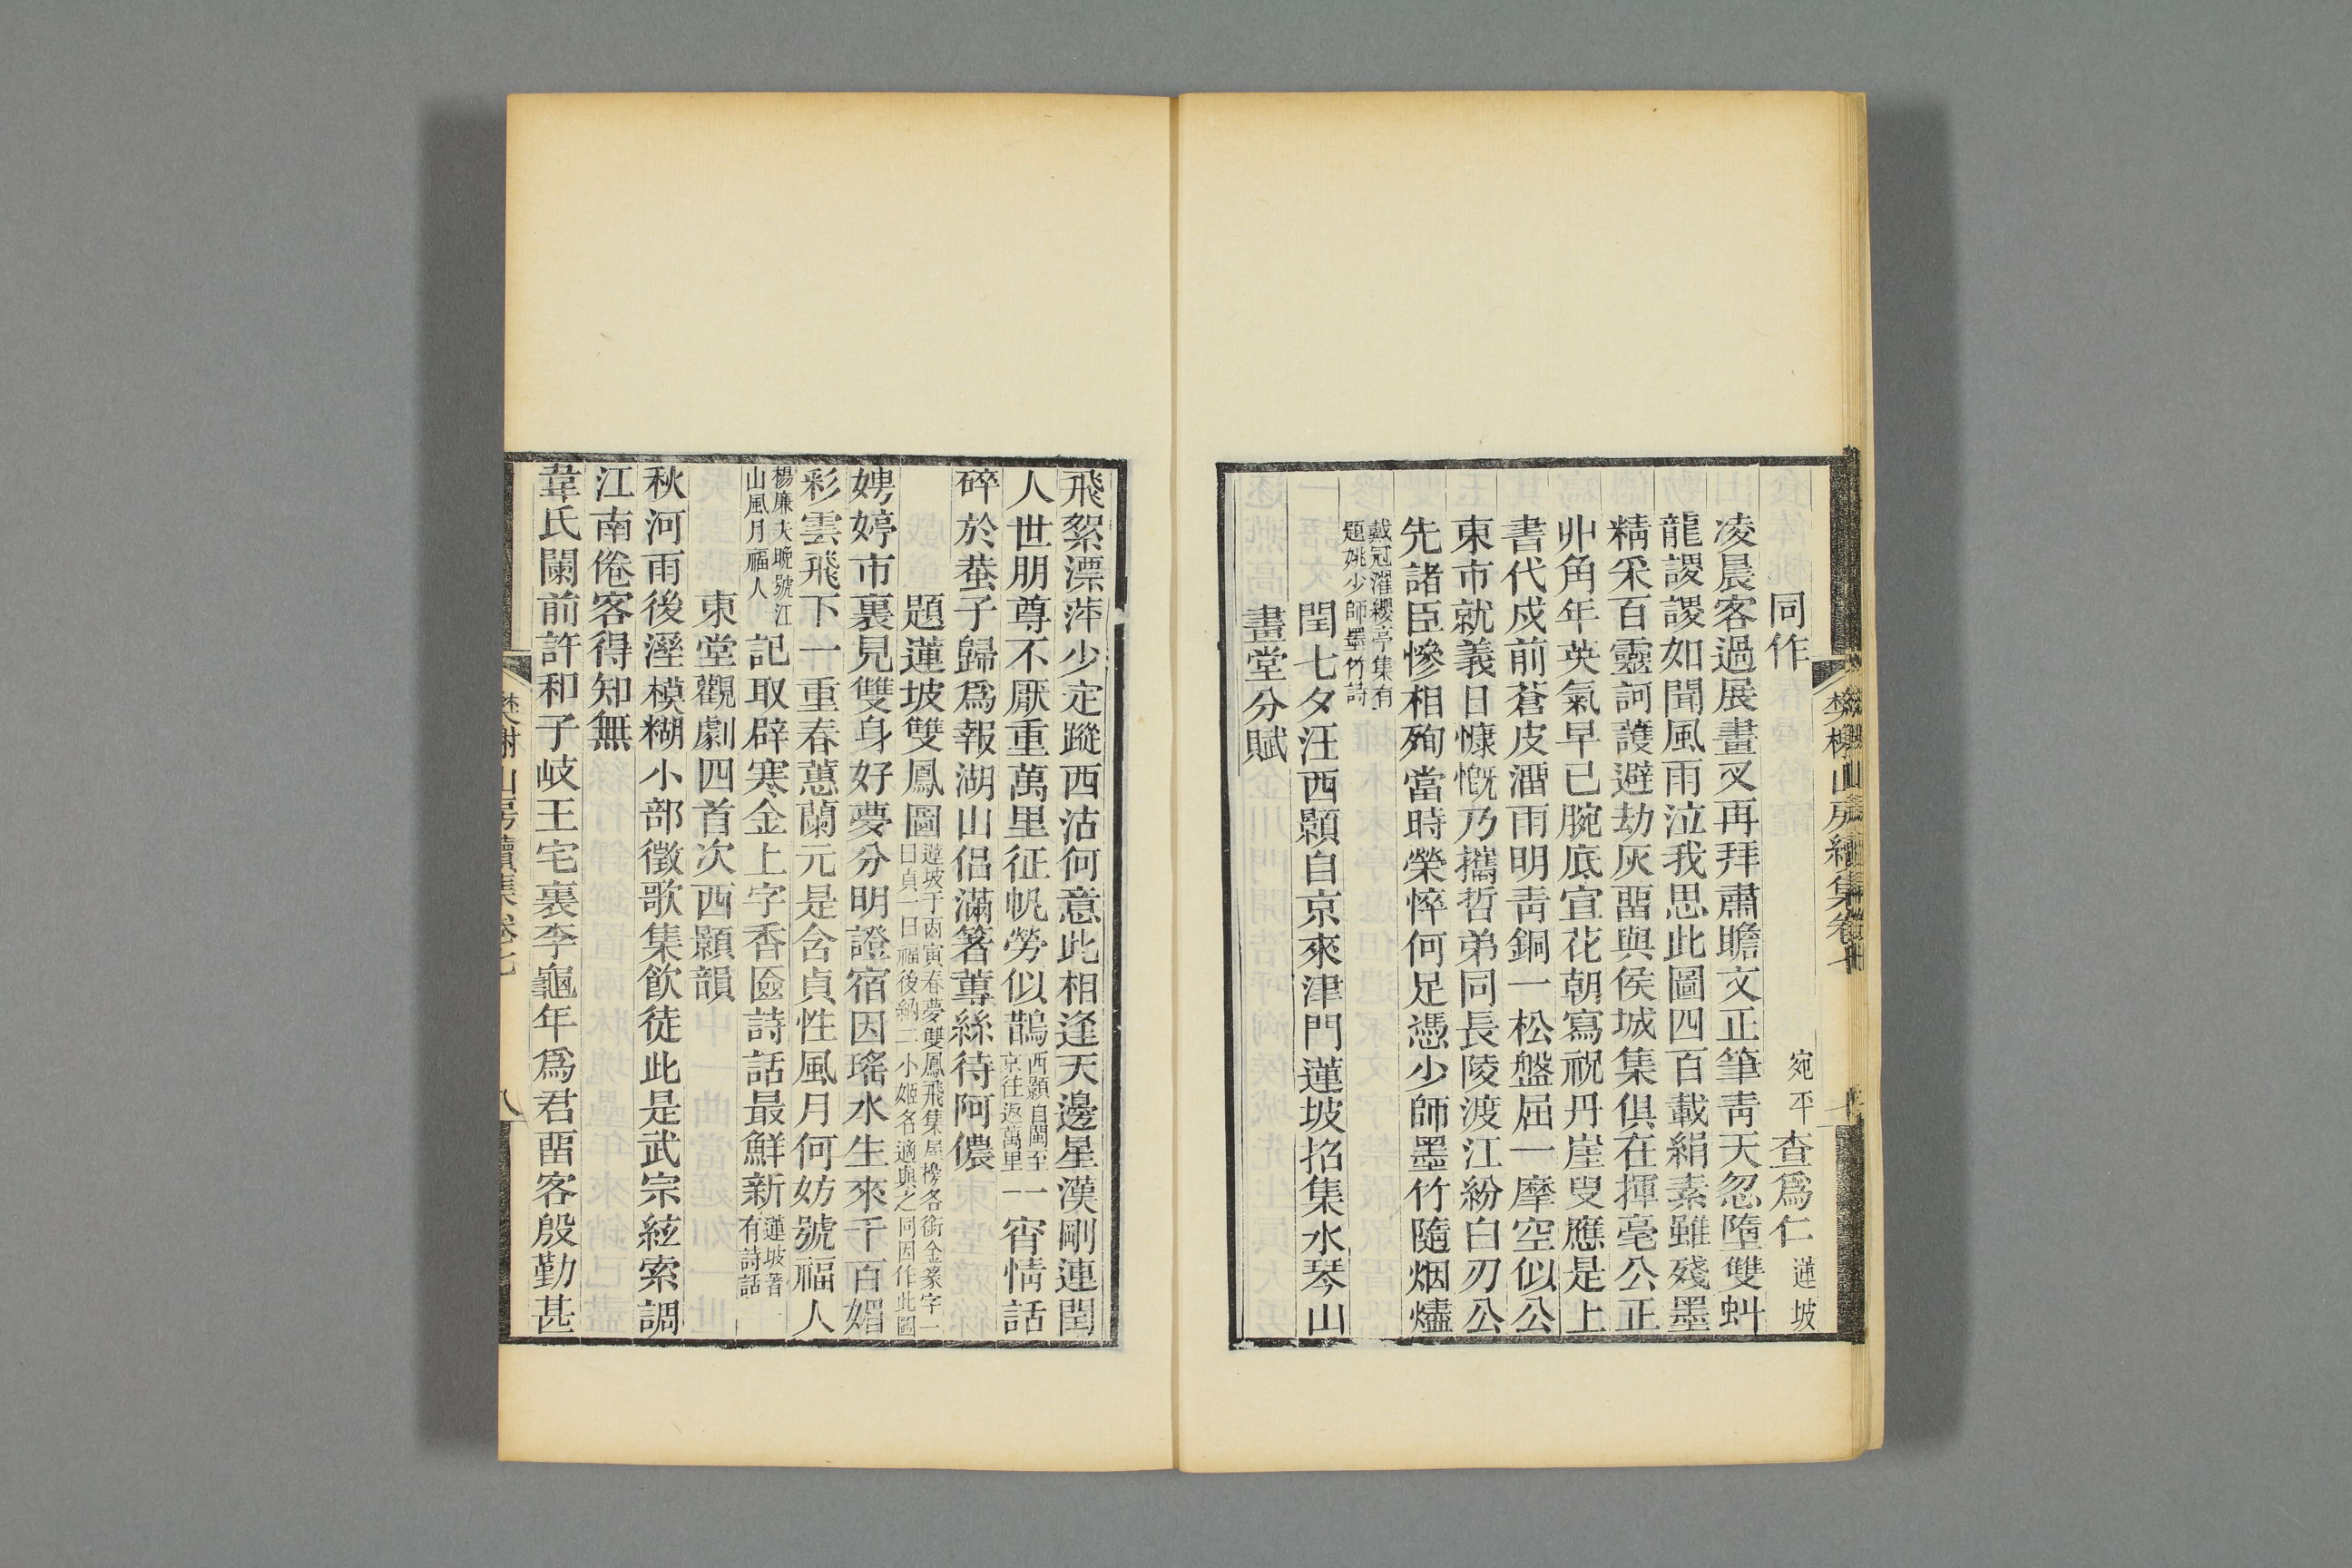 同作　宛平查爲仁蓮坡
凌晨客過展畫叉再拜肅瞻文正筆靑天忽墮雙虯
龍謖謖如聞風雨泣我思此圖四百載絹素雖殘墨
精采百靈訶護避劫灰畱與侯城集俱在揮毫公正
丱角年英氣早已腕底宣花朝寫祝丹崖叟應是上
書代戍前蒼皮溜雨明靑銅一松盤屈一摩空似公
東市就義日慷慨乃攜哲弟同長陵渡江紛白刃公
先諸臣慘相殉當時榮悴何足憑少師墨竹隨烟燼
戴冠濯纓亭集有
題姚少師墨竹詩
閏七夕汪西顥自京來津門蓮坡招集水琴山
畫堂分賦
飛絮漂萍少定蹤西沽何意此相逢天邊星漢剛連閏
人世朋尊不厭重萬里征帆勞似鵲西顥自閩至京往返萬里一宵情話
碎於蛬子歸爲報湖山侣滿箸蓴絲待阿儂
題蓮坡雙鳳圖蓮坡于丙寅春夢雙鳳飛集屋㯽各銜金篆字一曰貞一曰福後納二小姬名適與之同因作此圖
娉婷市裏見雙身好夢分明證宿因瑤水生來千百媚
彩雲飛下一重春蕙蘭元是含貞性風月何妨號福人
楊廉夫晚號江山風月福人記取辟寒金上字香匳詩話最鮮新蓮坡著有詩話
東堂觀劇四首次西顥韻
秋河雨後溼模糊小部徵歌集飮徒此是武宗絃索調
江南倦客得知無
韋氏闌前許和子岐王宅裏李龜年爲君畱客殷勤甚
樊榭山房續集卷七　八